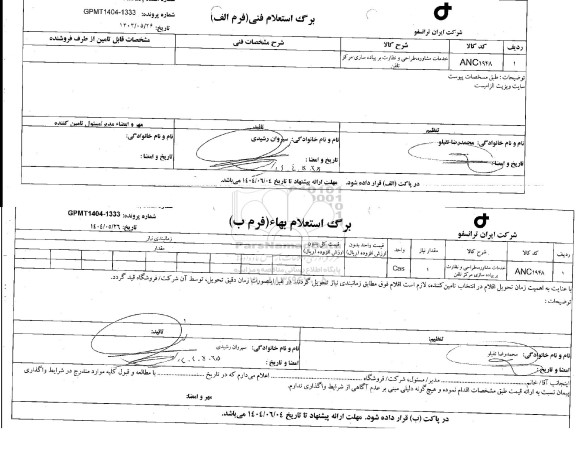 شماره پرونده: GPMT1404-1333
برگ استعلام فنی(فرم الف)
شرکت ایران ترانسفو
ردیف کد کالا شرح کالا شرح مشخصات فنی مشخصات قابل تامین از طرف فروشنده
۱ ANC۱۹۴۸ خدمات مشاوره،طراحی و نظارت بر پیاده سازی مرکز تلفن
توضیحات : طبق مشخصات پیوست
سایت ویزیت الزامیست.
تنظیم تائید مهر و امضاء مدیر/مسئول تامین کننده
نام و نام خانوادگی: محمدرضا تقیلو نام و نام خانوادگی: سیروان رشیدی نام و نام خانوادگی:
تاریخ و امضا : تاریخ و امضا : تاریخ و امضا :
در پاکت (الف) قرار داده شود. مهلت ارائه پیشنهاد تا تاریخ ۱۴۰۴/۰۶/۰۴ می‌باشد.
شماره پرونده: GPMT1404-1333
تاریخ: ۱۴۰۴/۰۵/۲۶
برگ استعلام بهاء(فرم ب)
شرکت ایران ترانسفو
ردیف کد کالا شرح کالا مقدار نیاز واحد قیمت واحد بدون ارزش افزوده (ریال) قیمت کل بدون ارزش افزوده (ریال) زمانبندی نیاز
مقدار
۱ ANC۱۹۴۸ خدمات مشاوره،طراحی و نظارت بر پیاده سازی مرکز تلفن ۱ Cas
با عنایت به اهمیت زمان تحویل اقلام در انتخاب تامین‌کننده، لازم است اقلام فوق مطابق زمانبندی نیاز تحویل گردند؛ در غیر اینصورت زمان دقیق تحویل، توسط آن شرکت/فروشگاه قید گردد.
توضیحات :
تنظیم تائید:
نام و نام خانوادگی: محمدرضا تقیلو نام و نام خانوادگی: سیروان رشیدی
امضا و تاریخ: تاریخ و امضا :
اینجانب آقا/ خانم مدیر/ مسئول، شرکت/ فروشگاه اعلام می‌دارم که در تاریخ با مطالعه و قبول کلیه موارد مندرج در شرایط واگذاری
پیمان نسبت به ارائه قیمت طبق مشخصات اقدام نموده و هیچ‌گونه دلیلی مبنی بر عدم آگاهی از شرایط واگذاری ندارم.
مهر و امضا:
در پاکت (ب) قرار داده شود. مهلت ارائه پیشنهاد تا تاریخ ۱۴۰۴/۰۶/۰۴ می‌باشد.